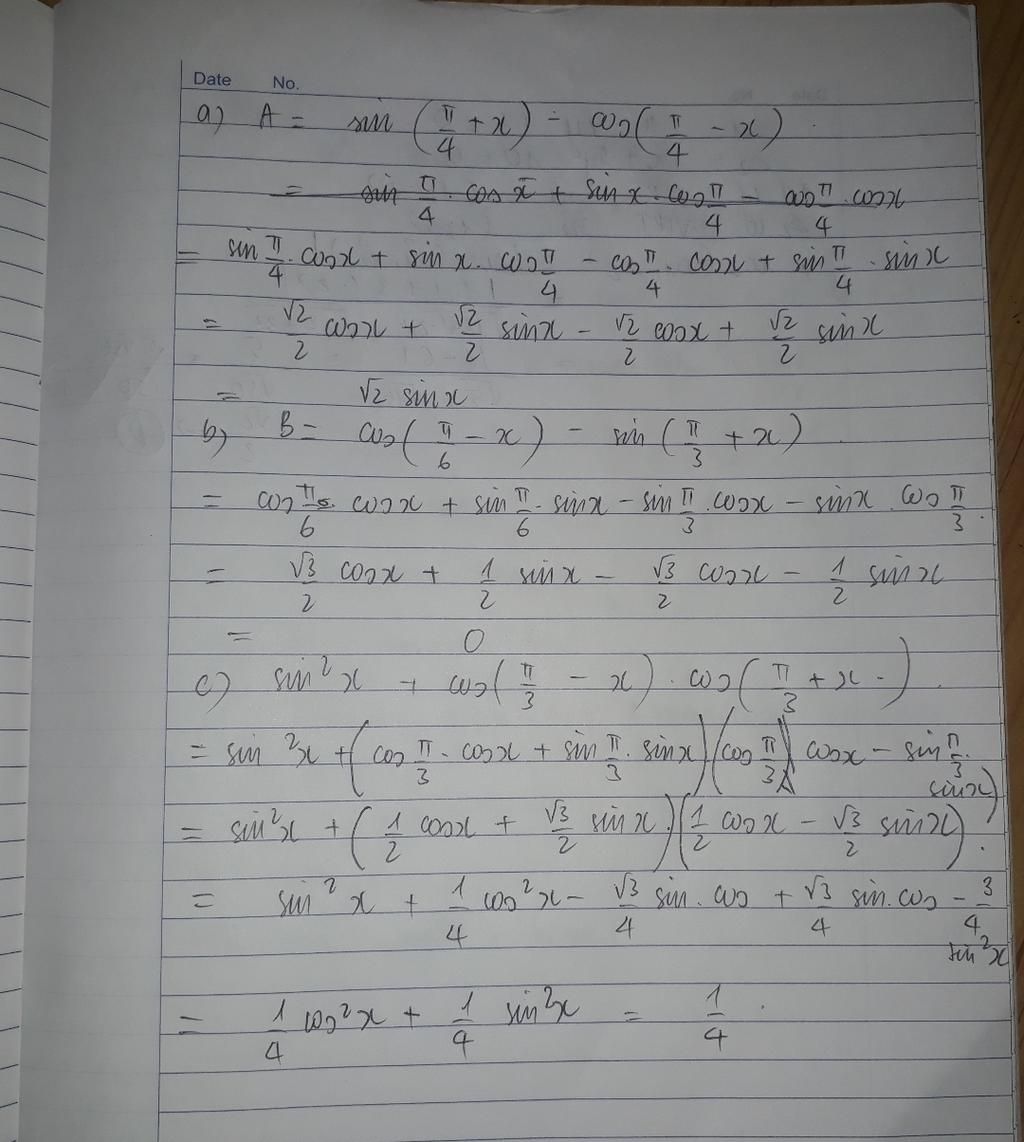 Date No.
a) A = sin (π/4 + x) - cos (π/4 - x)
= sin π/4 . cos x + sin x . cos π/4 - cos π/4 . cos x
= sin π/4 . cos x + sin x . cos π/4 - cos π/4 . cos x + sin π/4 . sin x
= √2/2 cos x + √2/2 sin x - √2/2 cos x + √2/2 sin x
= √2 sin x
b) B = cos (π/6 - x) - sin (π/3 + x)
= cos π/6 . cos x + sin π/6 . sin x - sin π/3 . cos x - sin x . cos π/3 .
= √3/2 cos x + 1/2 sin x - √3/2 cos x - 1/2 sin x
= 0
c) sin²x + cos (π/3 - x) . cos (π/3 + x)
= sin²x + (cos π/3 . cos x + sin π/3 . sin x) (cos π/3 cos x - sin π/3 .
sin x)
= sin²x + (1/2 cos x + √3/2 sin x) (1/2 cos x - √3/2 sin x) .
= sin²x + 1/4 cos²x - √3/4 sin . cos + √3/4 sin . cos - 3/4
sin²x
= 1/4 cos²x + 1/4 sin²x = 1/4 .